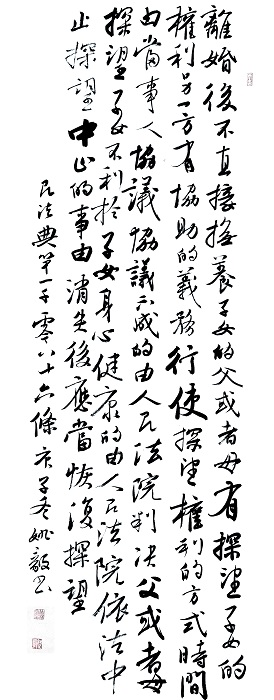 離婚後不直接撫養子女的父或者母有探望子女的
權利另一方有協助的義務行使探望權利的方式時間
由當事人協議協議不成的由人民法院判决父或者母
探望子女不利於子女身心健康的由人民法院依法中
止探望中止的事由消失後應當恢復探望
民法典第一千零八十六條 庚子冬姚毅书